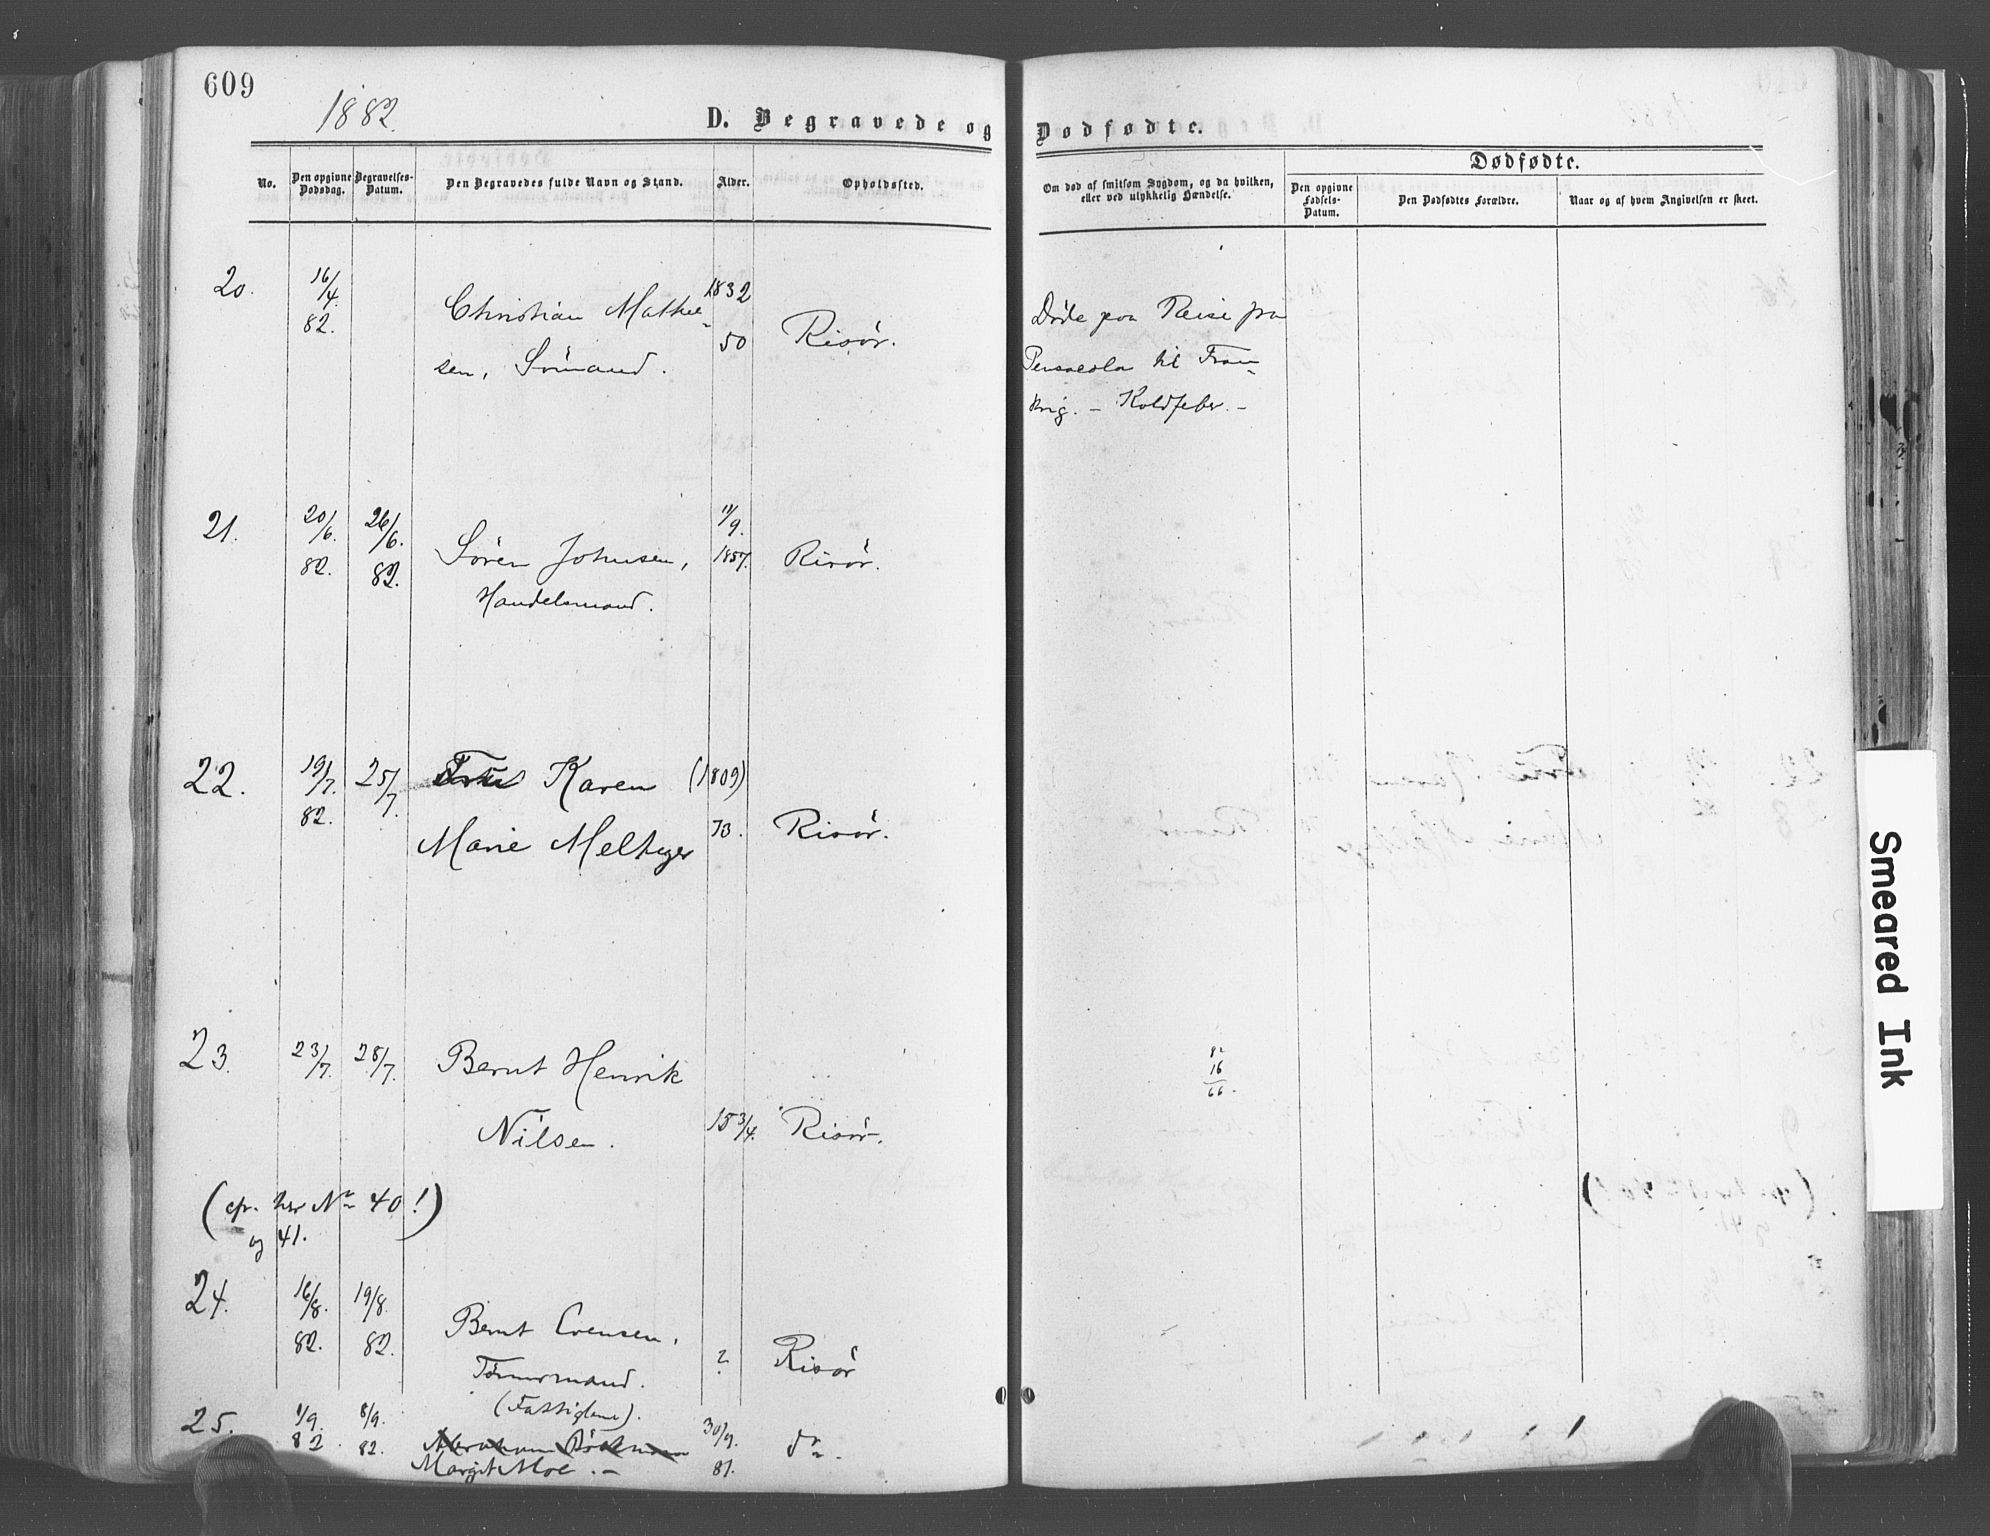 609
1882.
D. Begravede og Dødfødte.
No.
Den opgivne Dødsdag.
Begravelses-Datum.
Den Begravedes fulde Navn og Stand.
Alder.
Opholdssted.
Om død af smitsom Sygdom, og da hvilken, eller ved ulykkelig Hændelse.
Dødfødte.
Den opgivne Fødsels-Datum.
Den Dødfødtes Forældre.
Naar og af hvem Angivelsen er skeet.
20. 16/4. 1832
Christian Mathie-
82. 50 Risør.
sen, Sømand.
Døde paa Reise fra
Pensacola til Fran-
krig. - Koldfeber. -
21. 20/6. 26/6. 11/9.
82. 82. Sören Johnsen, 1857. Risør.
Handelsmand.
22. 19/7. 25/7. Karen (1809)
82. Marie Meltzer 73. Risør.
23. 23/7. 28/7. Bernt Henrik
Nilsen. 15 3/4. Risør.
82
16
66.
(cfr. her No 40!)
og 41.
24. 16/8. 19/8.
82. 82. Bernt Evensen, ? Risør
Tømmermand.
(Fattiglem).
25. 1/9. 8/9. 30/9.
82. 82. do.
Margit Moe. - 81.
Smeared Ink